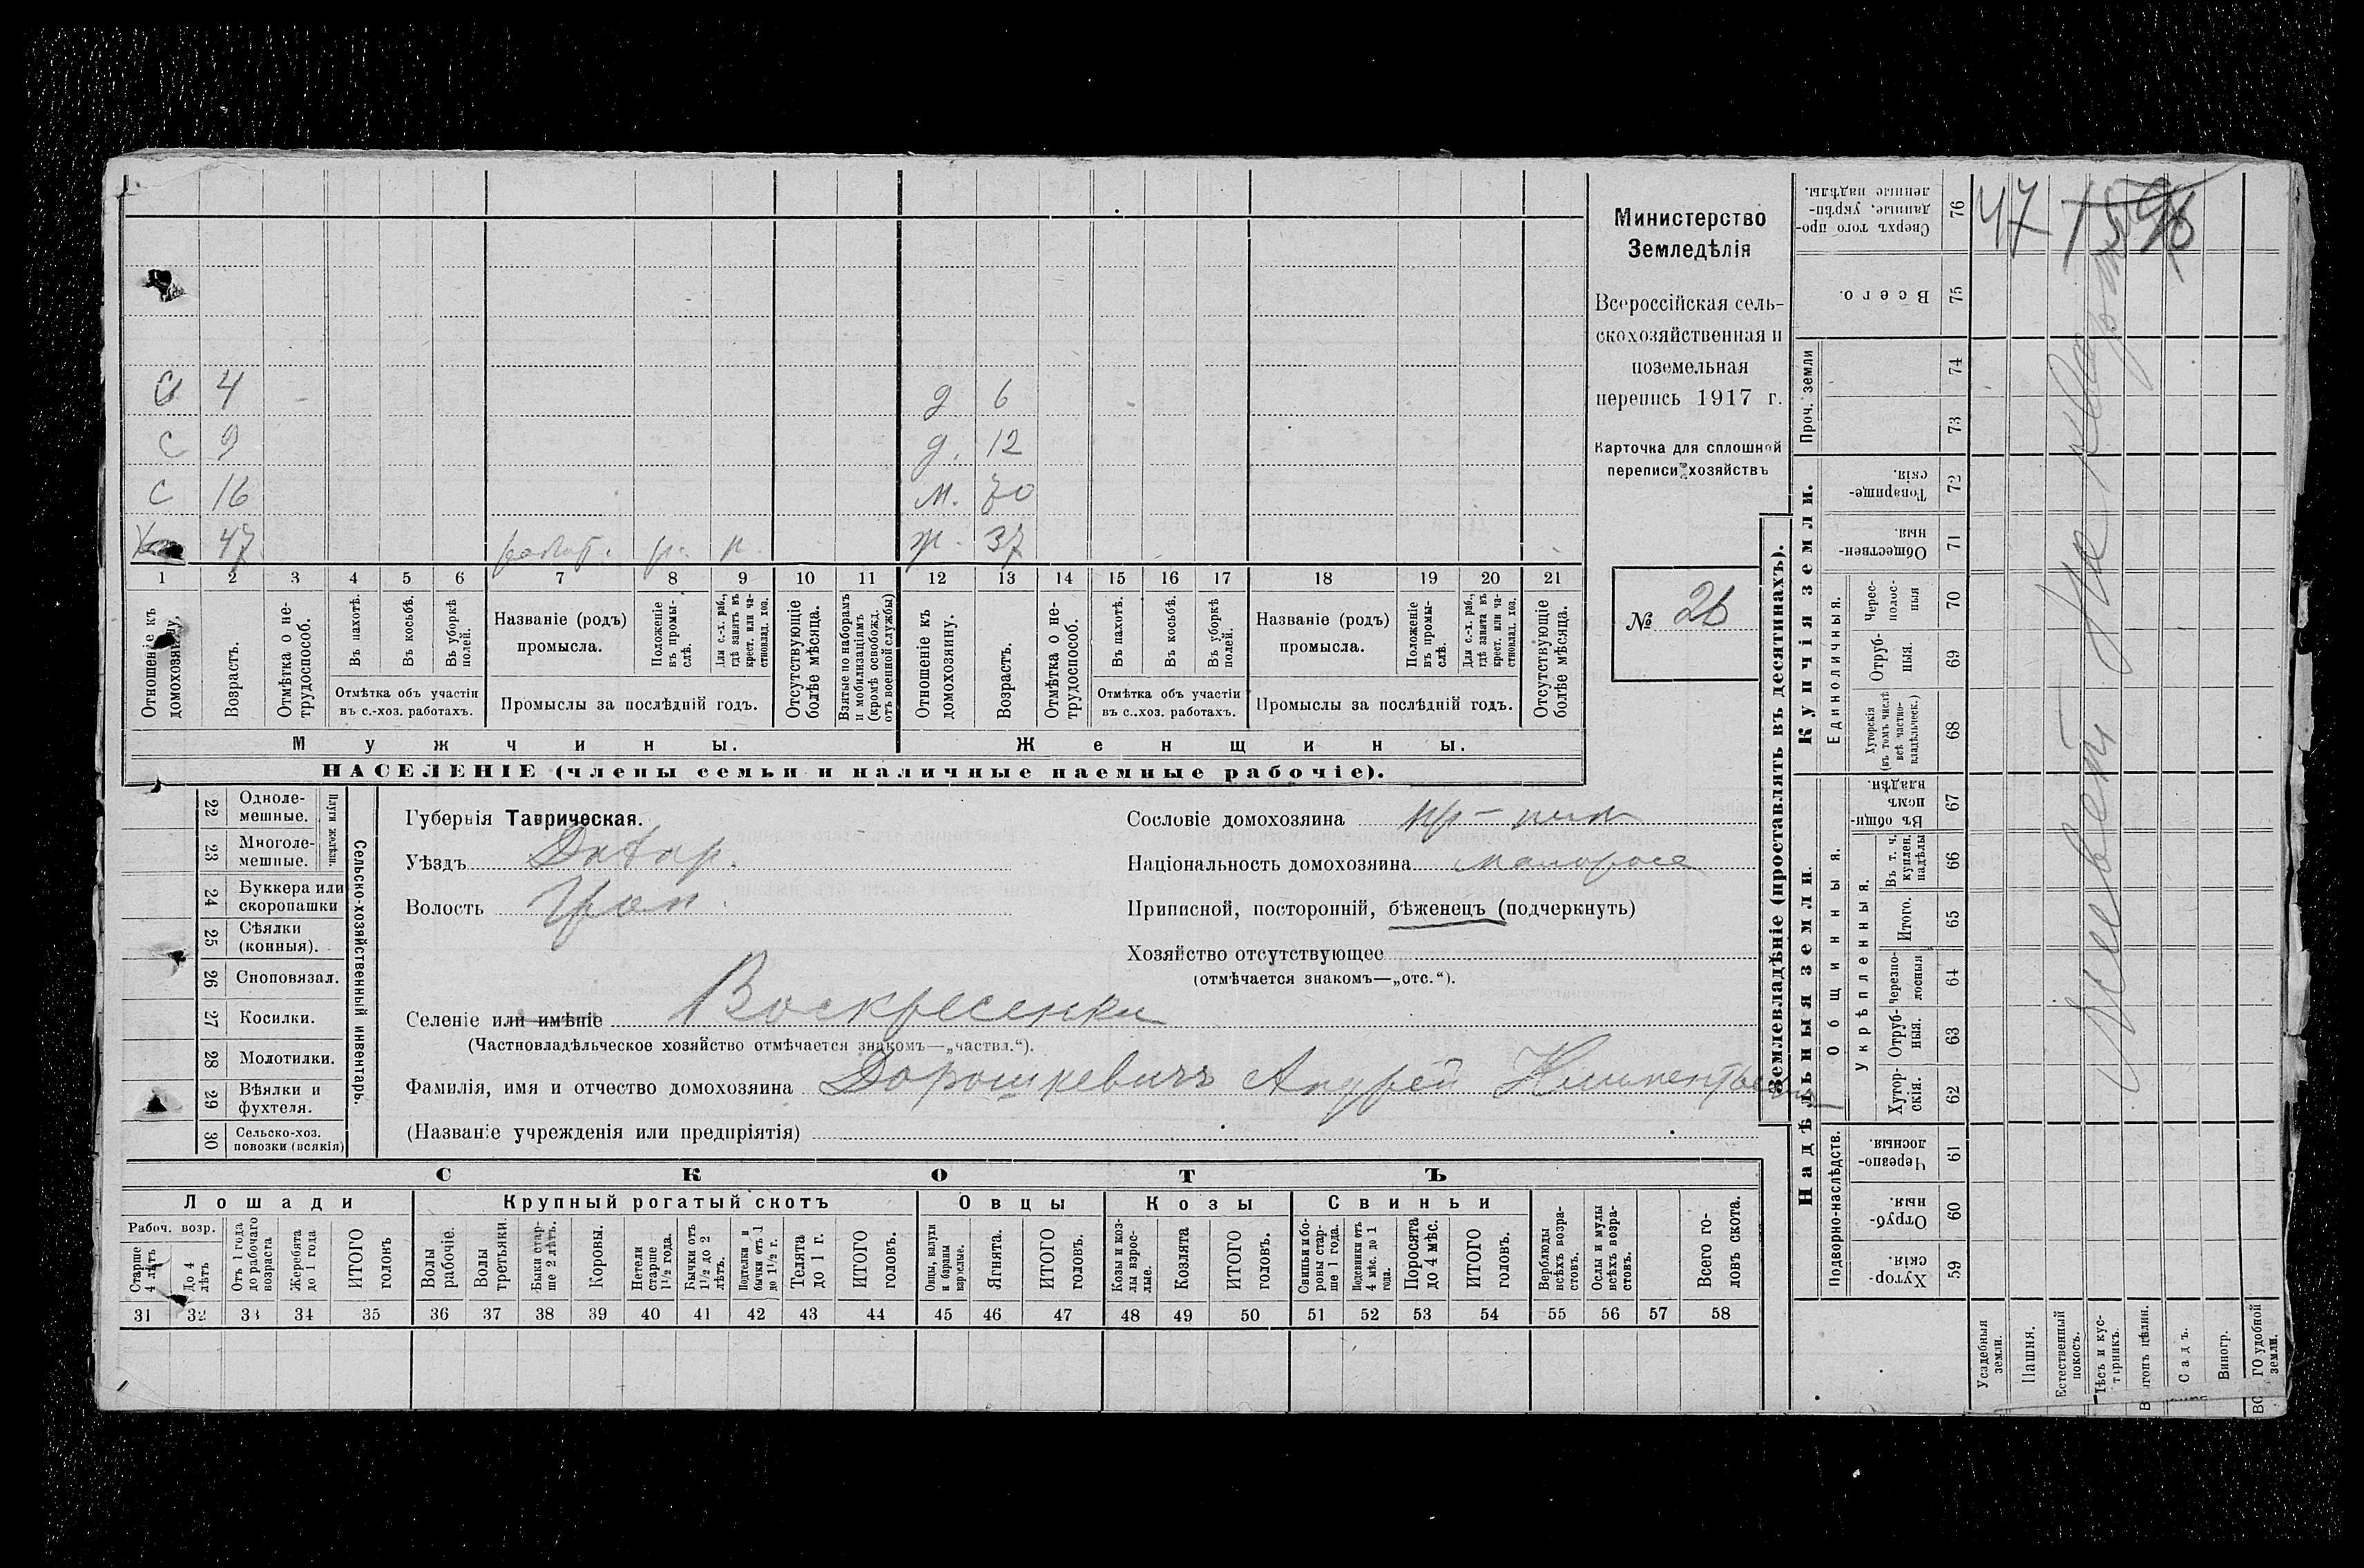 Министерство
Земледѣлія
Всероссійская сель-
скохозяйственная и
поземельная
перепись 1917 г.
Карточка для сплошной
переписи хозяйствъ
№ 26
С 4 д 6
С 9 д. 12
С 16 м. 70
47 работ. р. ж. 37
1 2 3 4 5 6 7 8 9 10 11 12 13 14 15 16 17 18 19 20 21
Отношеніе къ домохозяину.
Возрастъ.
Отмѣтка о не-трудоспособ.
Въ пахотѣ.
Въ косьбѣ.
Въ уборкѣ полей.
Отмѣтка объ участіи
въ с.-хоз. работахъ.
Названіе (родъ)
промысла.
Положеніе въ промы-слѣ.
Для с.-х. раб., гдѣ занятъ въ крест. или ча-стновлад. хоз.
Промыслы за послѣдній годъ.
Отсутствующіе болѣе мѣсяца.
Взятые по наборамъ и мобилизаціямъ (кромѣ освобожд. отъ военной службы)
Отношеніе къ домохозяину.
Возрастъ.
Отмѣтка о не-трудоспособ.
Въ пахотѣ.
Въ косьбѣ.
Въ уборкѣ полей.
Отмѣтка объ участіи
въ с..хоз. работахъ.
Названіе (родъ)
промысла.
Положеніе въ промы-слѣ.
Для с.-х. раб., гдѣ занята въ крест. или ча-стновлад. хоз.
Промыслы за послѣдній годъ.
Отсутствующіе болѣе мѣсяца.
Мужчины. Женщины.
НАСЕЛЕНІЕ (члены семьи и наличные наемные рабочіе).
22 Одноле-мешные.
23 Многоле-мешные.
Плуги желѣзн.
24 Буккера или скоропашки
25 Сѣялки (конныя).
26 Сноповязал.
27 Косилки.
28 Молотилки.
29 Вѣялки и фухтеля.
30 Сельско-хоз. повозки (всякія)
Сельско-хозяйственный инвентарь.
Губернія Таврическая.
Уѣздъ
Волость
Селеніе или имѣніе Воскресенка
(Частновладѣльческое хозяйство отмѣчается знакомъ—„частвл.“).
Фамилія, имя и отчество домохозяина Дорошкевичъ Андрей
(Названіе учрежденія или предпріятія)
Сословіе домохозяина кр-нин
Національность домохозяина малоросс
Приписной, посторонній, бѣженецъ (подчеркнуть)
Хозяйство отсутствующее
(отмѣчается знакомъ—„отс.“).
СКОТЪ
Лошади Крупный рогатый скотъ Овцы Козы Свиньи
Рабоч. возр.
Старше 4 лѣтъ
До 4 лѣтъ
Отъ 1 года до рабочаго возраста
Жеребята до 1 года
ИТОГО головъ
Волы рабочіе.
Волы третьяки.
Быки стар-ше 2 лѣтъ.
Коровы.
Нетели старше 1½ года.
Бычки отъ 1½ до 2 лѣтъ.
Подтелки и бычки отъ 1 до 1½ г.
Телята до 1 г.
ИТОГО головъ.
Овцы, валухи и бараны взрослые.
Ягнята.
ИТОГО головъ.
Козы и коз-лы взрос-лые.
Козлята
ИТОГО головъ.
Свиньи и бо-ровы стар-ше 1 года.
Подсвинки отъ 4 мѣс. до 1 года.
Поросята до 4 мѣс.
ИТОГО головъ.
Верблюды всѣхъ возра-стовъ.
Ослы и мулы всѣхъ возра-стовъ.
Всего го-ловъ скота.
31 32 33 34 35 36 37 38 39 40 41 42 43 44 45 46 47 48 49 50 51 52 53 54 55 56 57 58
Землевладѣніе (проставлять въ десятинахъ).
Надѣльныя земли.
Купчія земли.
Проч. земли
Сверхъ того про-данные, укрѣп-ленные надѣлы. 76
Всего. 75
74
73
Товарище-скія. 72
Обществен-ныя. 71
Единоличныя.
Черес-полос-ныя 70
Отруб-ныя. 69
Хуторскія (въ томъ числѣ всѣ частно-владѣльческ.) 68
Общинныя.
Въ общин-номъ владѣн. 67
Укрѣпленныя.
Въ т. ч. куплен. надѣлы 66
Итого. 65
Черезпо-лосныя 64
Отруб-ныя. 63
Хутор-скія. 62
Подворно-наслѣдств.
Черезпо-лосныя. 61
Отруб-ныя. 60
Хутор-скія. 59
Усадебныя земли.
Пашня.
Естественный покосъ.
Лѣсъ и кус-тарникъ.
Садъ.
Виногр.
ГО удобной земли.
47
Живет на